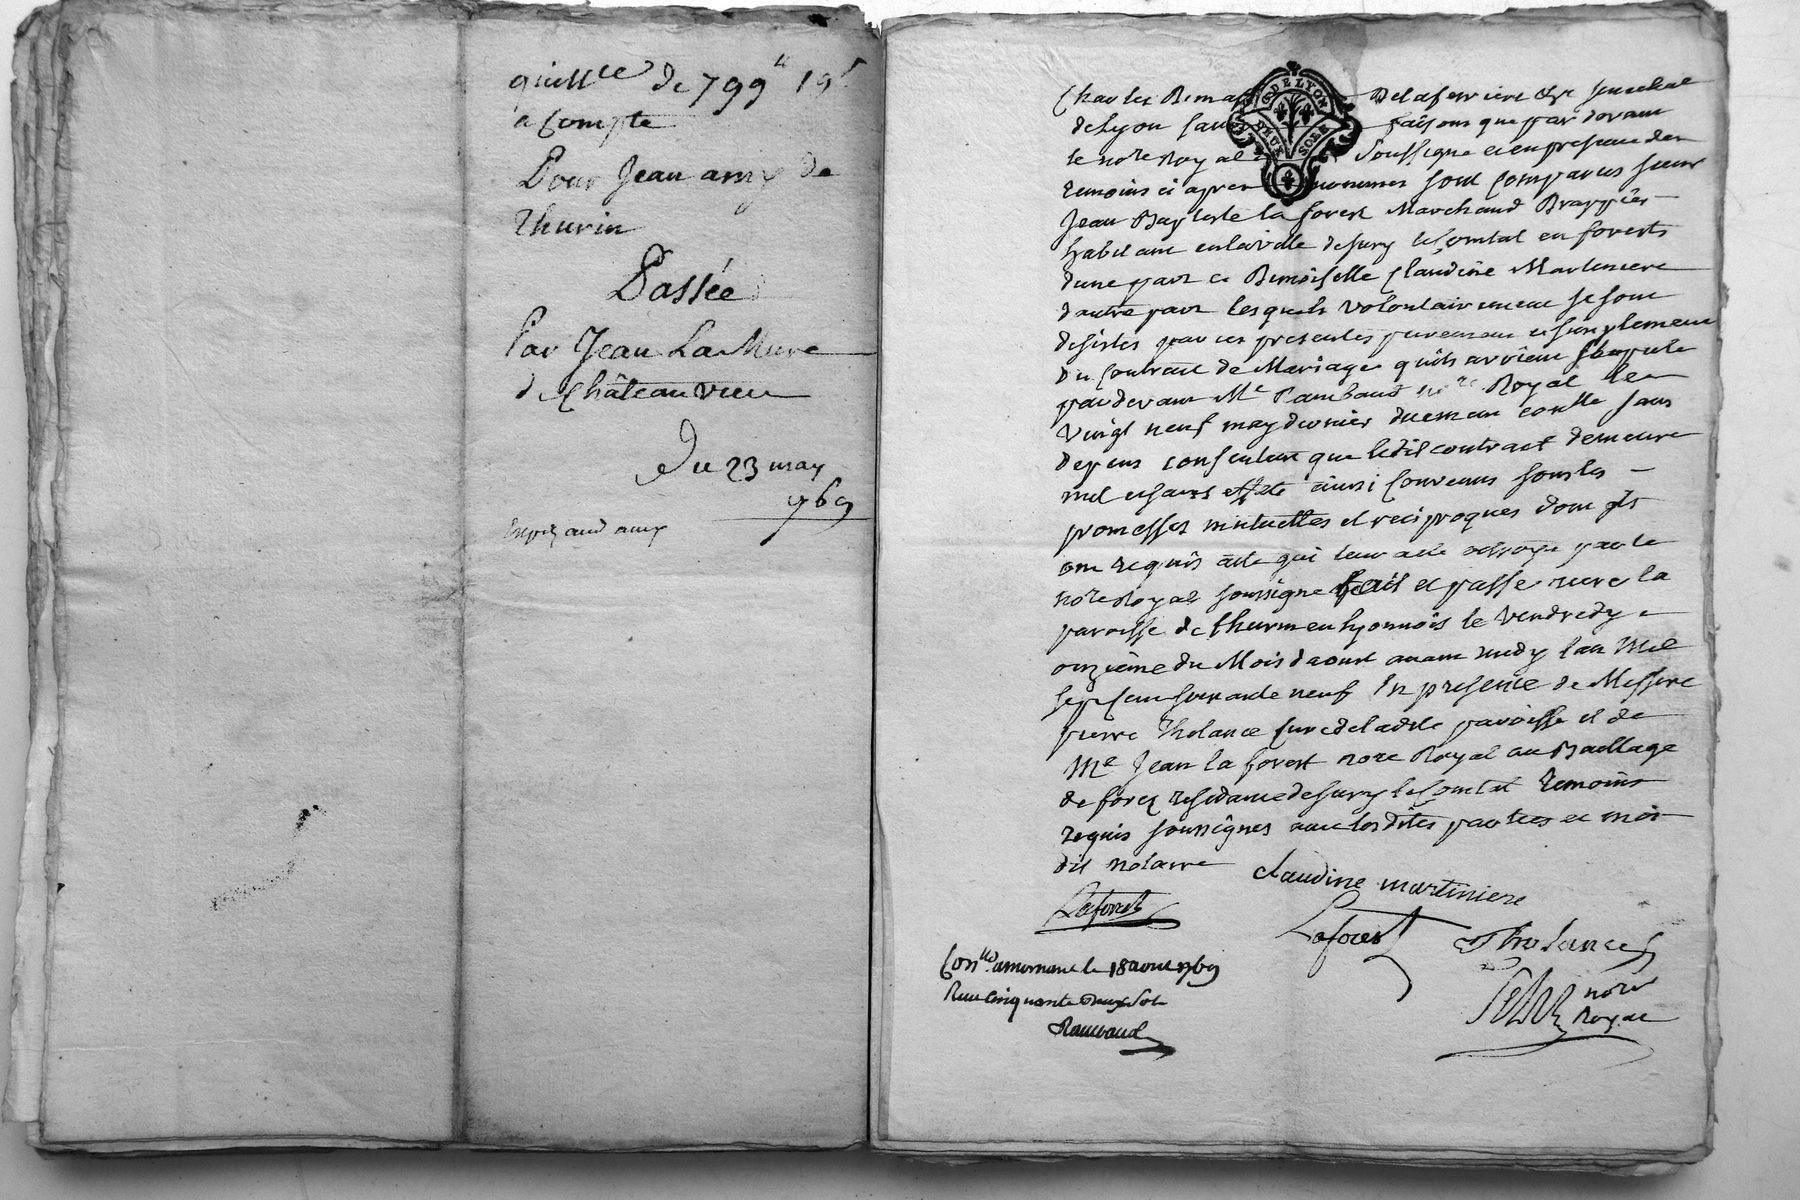 quitt.ce de 799 ll 19 s
a Compte
Pour Jean amy de
Thurin
Passée
Par Jean La Mure
de Châteauvieu
Du 23 may
1769
Charles Delaferriere senechal
de Lyon faisons que par devant
le no.re Royal Soussigne et en presence des
temoins ci apres nommes sont comparus sieur
Jean Baptiste la forest Marchand Drappier
habitant en la ville de sury le Comtal en forests
dune part et Demoiselle Claudine Martiniere
dautre part lesquels volontairement se sont
desistes par ces presentes purement et simplement
du Contract de Mariage quils avoient stipulé
pardevant M.e Raimbaud no.re Royal le
vingt neuf may dernier sans
depens consentent que ledit contract demeure
nul et sans effet ainsi Convenus sous les
promesses mutuelles et reciproques dont ils
ont requis acte qui leur a ete octroye par le
no.re Royal soussigne fait et passe la
paroisse de thurin en lyonnois le vendredy
onzieme du Mois daoust avant midy l'an Mil
sept Cent soixante neuf En presence de Messire
pierre Tholance Cure de ladite paroisse et de
M.e Jean la forest no.re Royal au Bailliage
de forez residant de sury le Comtal temoins
requis soussignes avec lesdites parties et moi
dit notaire
claudine martiniere
Laforest
Laforest Tholance
no.re
Royal
Con.lle a mornant le 18 aout 1769
Recu cinquante deux sols
Raimbaud
DE LYON
DEUX SOLS